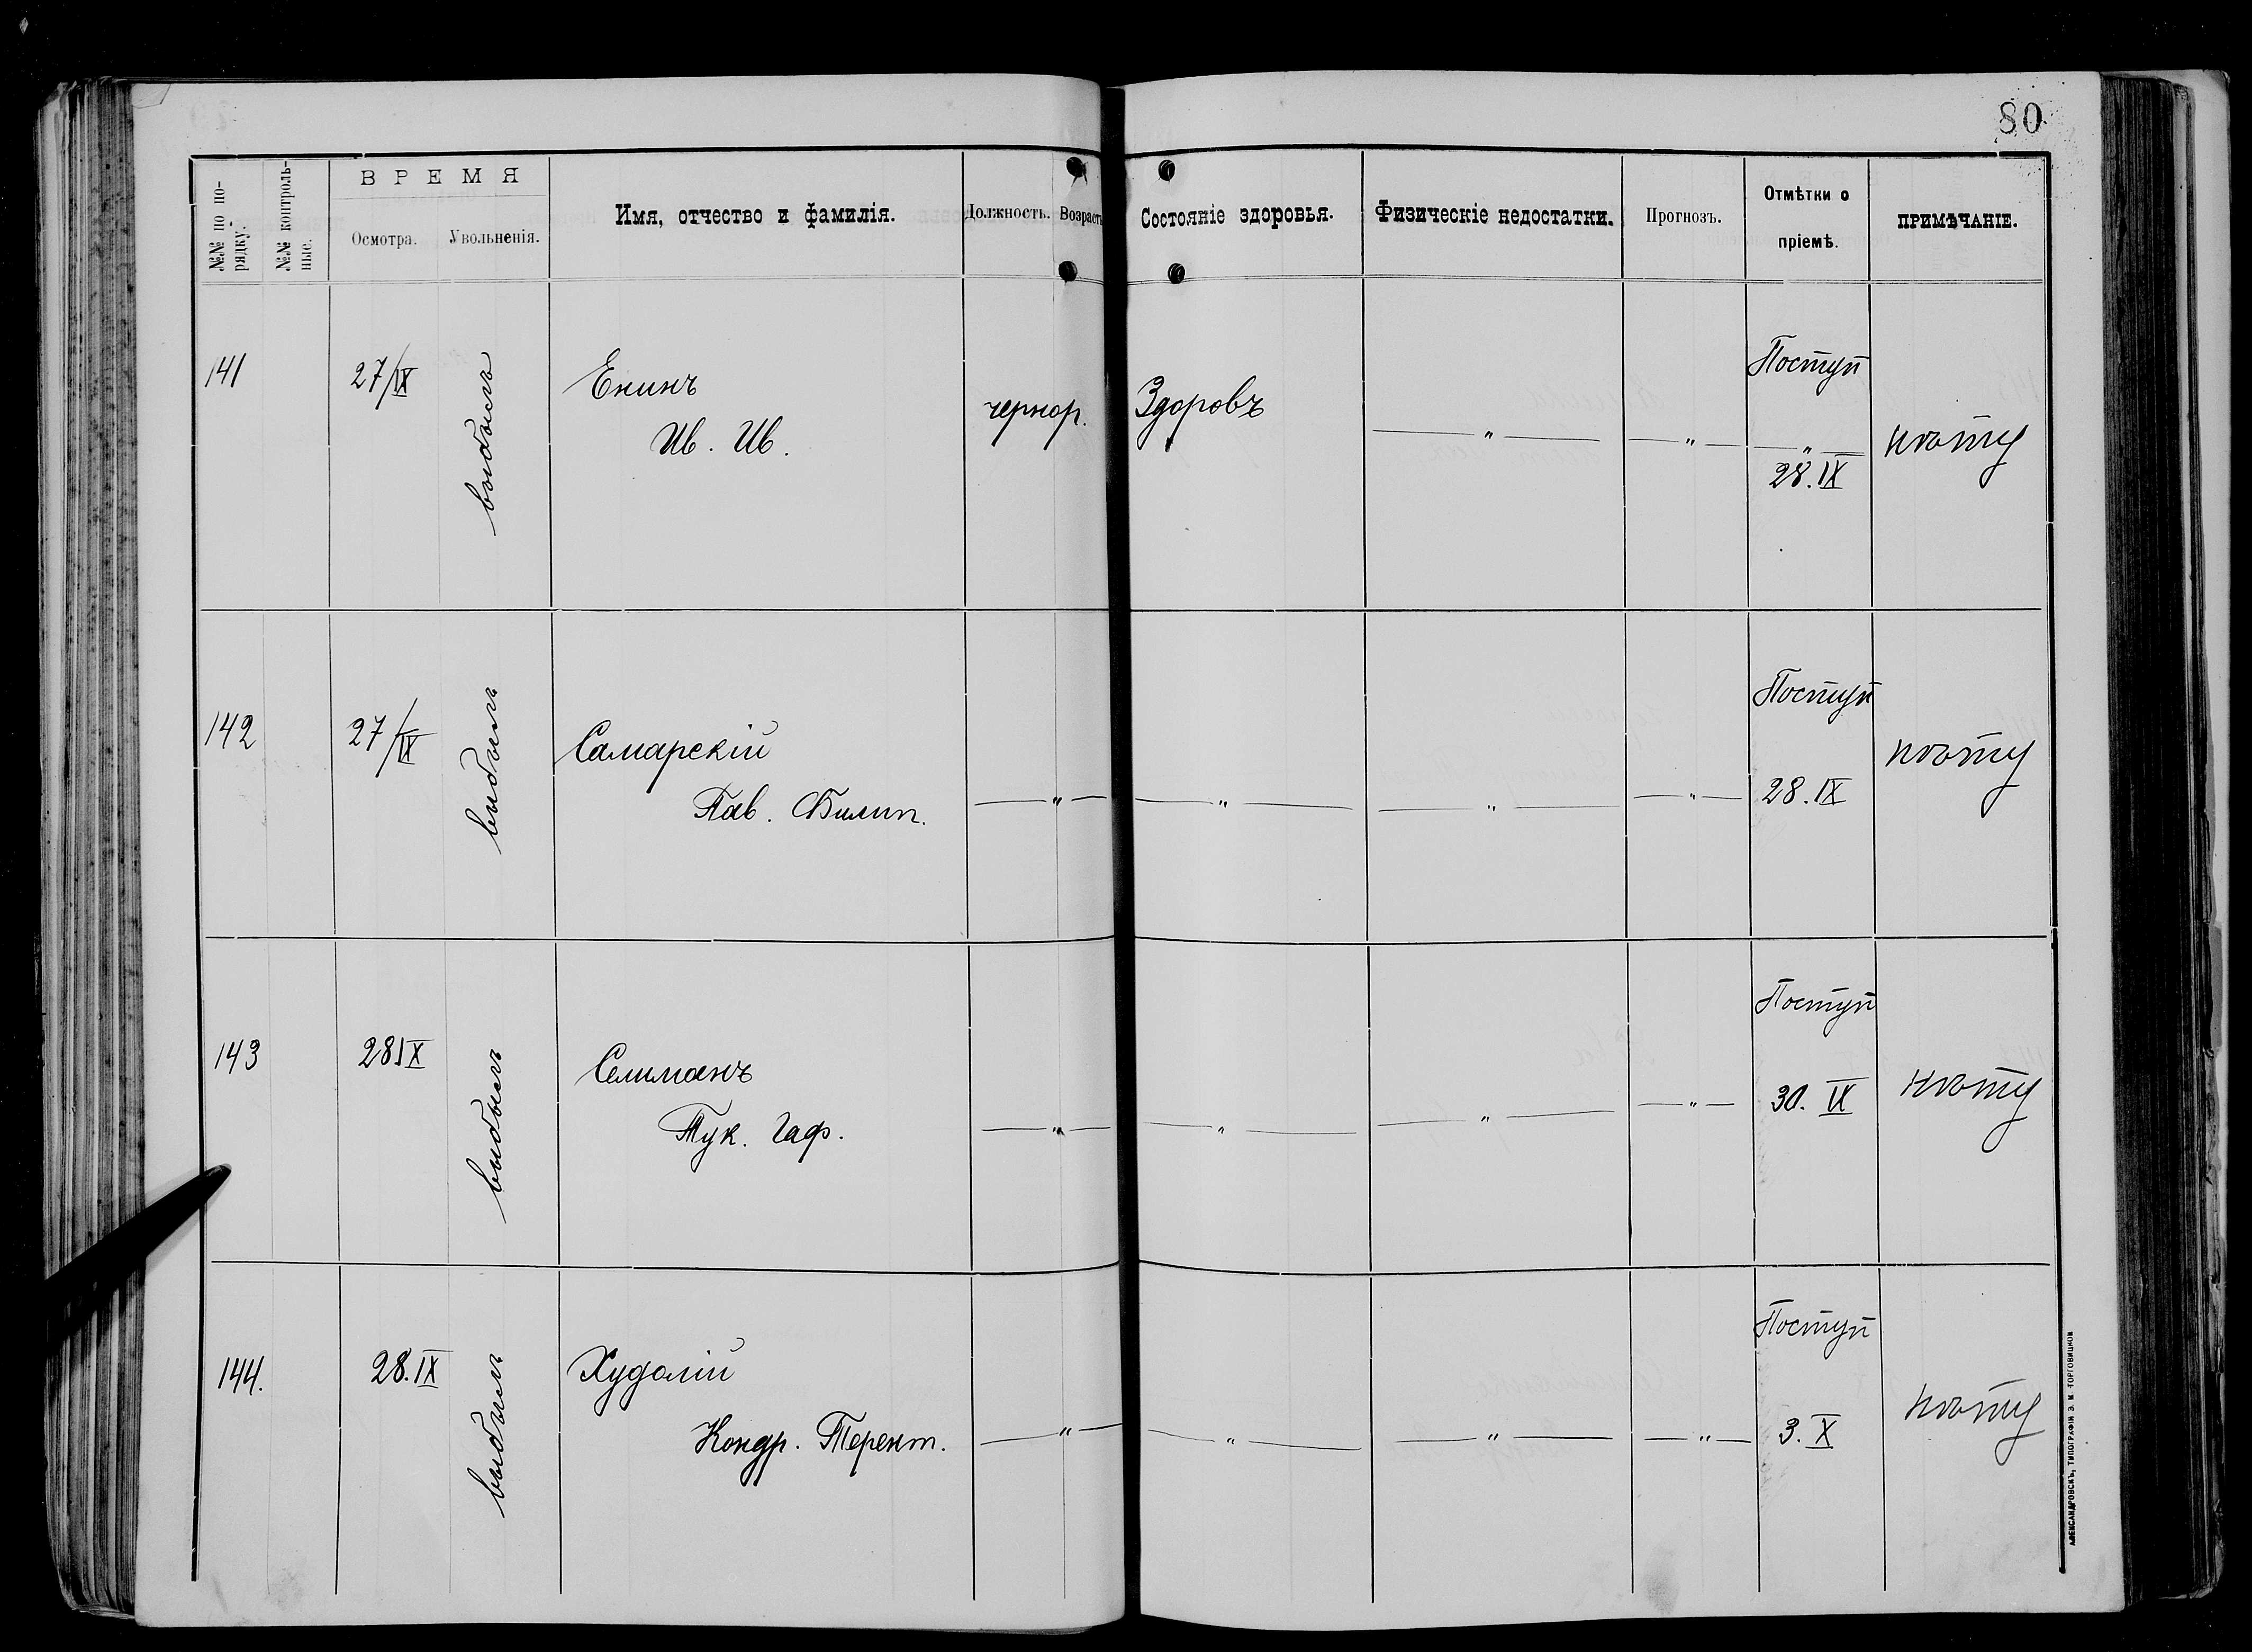 80
№№ по по-
рядку.
№№ контроль-
ные.
ВРЕМЯ
Осмотра.
Увольненія.
Имя, отчество и фамилія.
Должность.
Возрастъ
Состояніе здоровья.
Физическіе недостатки.
Прогнозъ.
Отмѣтки о
пріемѣ.
ПРИМѢЧАНІЕ.
141
27/IX
выбылъ
Енинъ
Ив. Ив.
чернор.
Здоровъ
— " —
— " —
Поступ
— " —
28.IX
нѣту
142
27/IX
выбылъ
Самарскій
Пав. Филип.
— " —
— " —
— " —
— " —
Поступ
28.IX
нѣту
143
28IX
выбылъ
Селиманъ
Тук. Гаф.
— " —
— " —
— " —
— " —
Поступ
30. IX
нѣту
144.
28.IX
выбылъ
Худолій
Кондр. Терент.
— " —
— " —
— " —
— " —
Поступ
3. X
нѣту
АЛЕКСАНДРОВСКЪ, ТИПОГРАФІЯ Э. И. ТОРГОВИЦКОВ